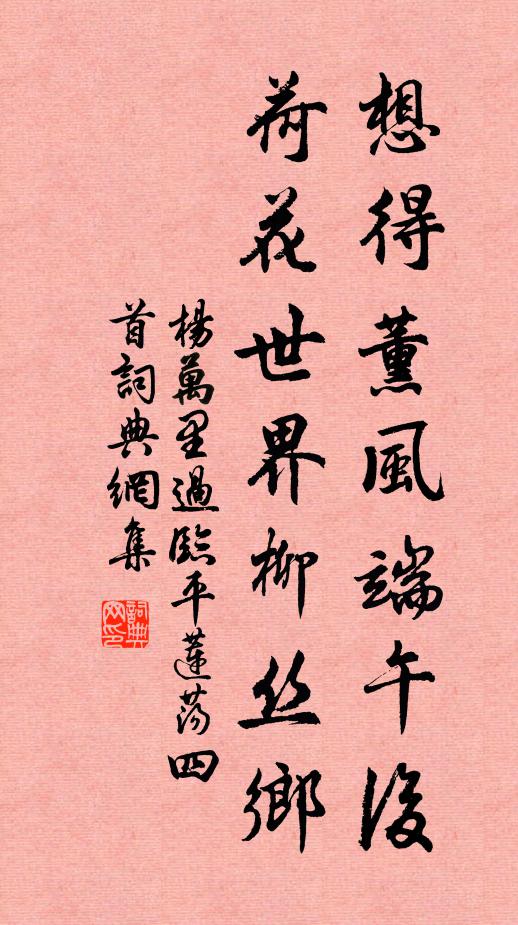 想得薰風端午後
荷花世界柳丝鄉
楊萬里過臨平蓮蕩四
首詞典網集
詞典
网印